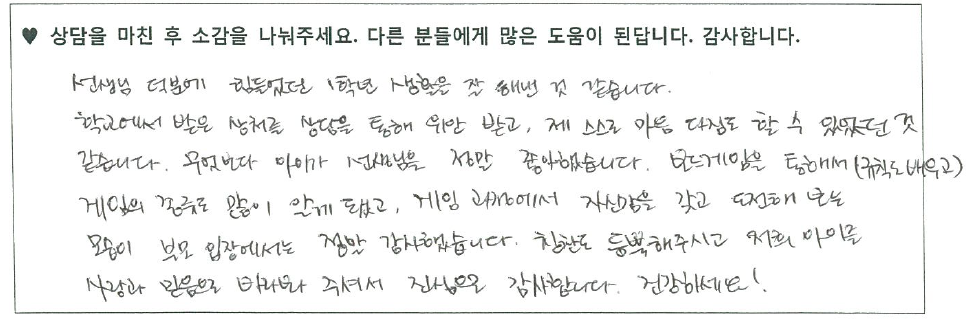 ♥ 상담을 마친 후 소감을 나눠주세요. 다른 분들에게 많은 도움이 된답니다. 감사합니다.
선생님 덕분에 힘들었던 1학년 생활을 잘 해낸 것 같습니다.
학교에서 받은 상처를 상담을 통해 위안 받고, 제 스스로 마음 다짐도 할 수 있었던 것
같습니다. 무엇보다 아이가 선생님을 정말 좋아했습니다. 보드게임을 통해서 (규칙도 배우고)
게임의 종류도 많이 알게 됐고, 게임 과정에서 자신감을 갖고 도전해 보는
모습이 부모 입장에서는 정말 감사했습니다. 칭찬도 듬뿍해주시고 저희 아이를
사랑과 믿음으로 바라봐 주셔서 진심으로 감사합니다. 건강하세요!